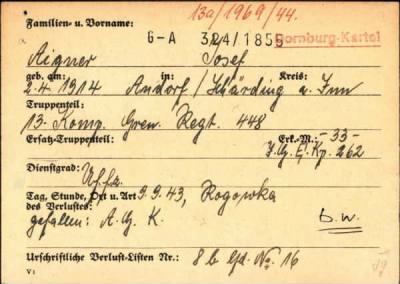 13a/1969/44.
Familien- u. Vorname:
G-A 324/1855 Dornburg-Kartei
Aigner Josef
geb. am: in: Kreis:
2.4.1914 Andorf / Schärding a. Inn
Truppenteil:
13. Komp. Gren. Regt. 448
Ersatz-Truppenteil: Erk.-M.: -33-
J.G.E.Kp. 262
Dienstgrad:
Uffz.
Tag, Stunde, Ort u. Art 9.9.43, Rogowka
des Verlustes:
gefallen: A.G.K. b.w.
Urschriftliche Verlust-Listen Nr.: 8 b lfd. No. 16
V1